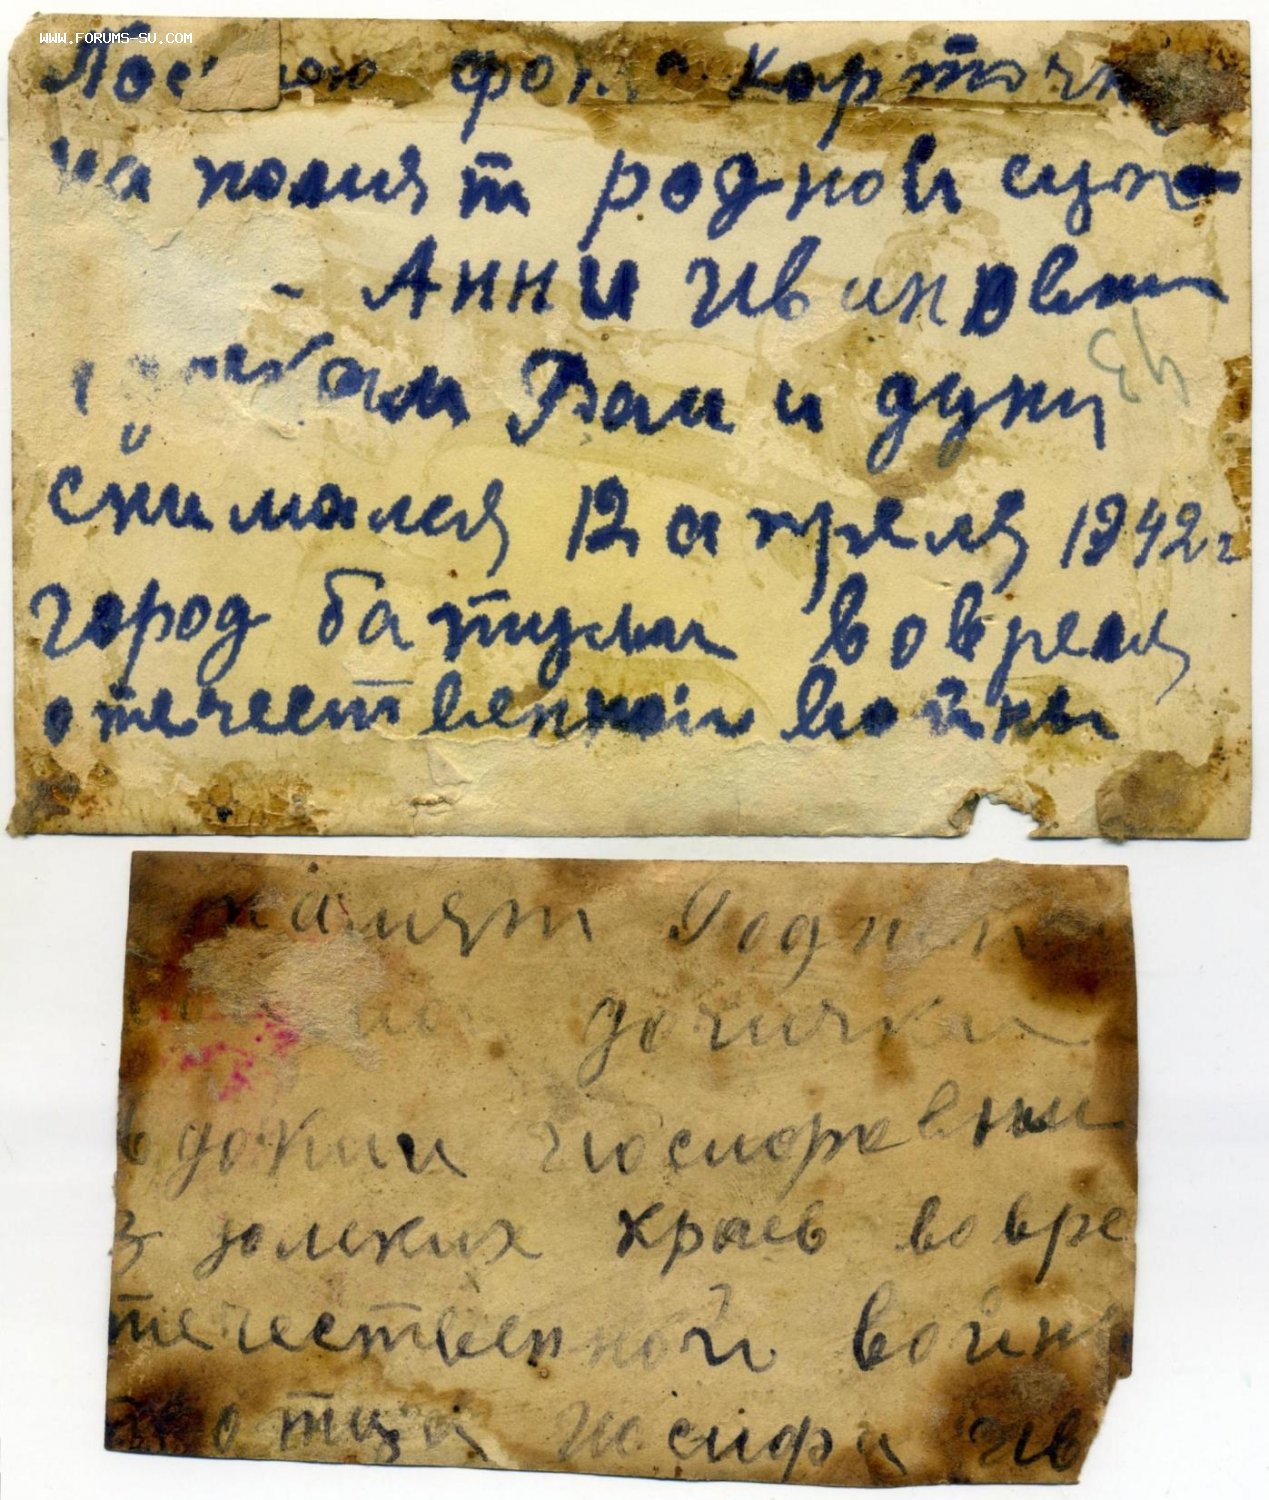 WWW.FORUMS-SU.COM
фото карточк
на помят роднои
Анни Ивановни
Раи и дуни
43
снимался 12 апреля 1942 г
город батуми вовремя
отечественной войны
памят Родной
дочички
вдокии Иосифовни
з далеких краев вовре
течественной войны
отца Иосифа Ив